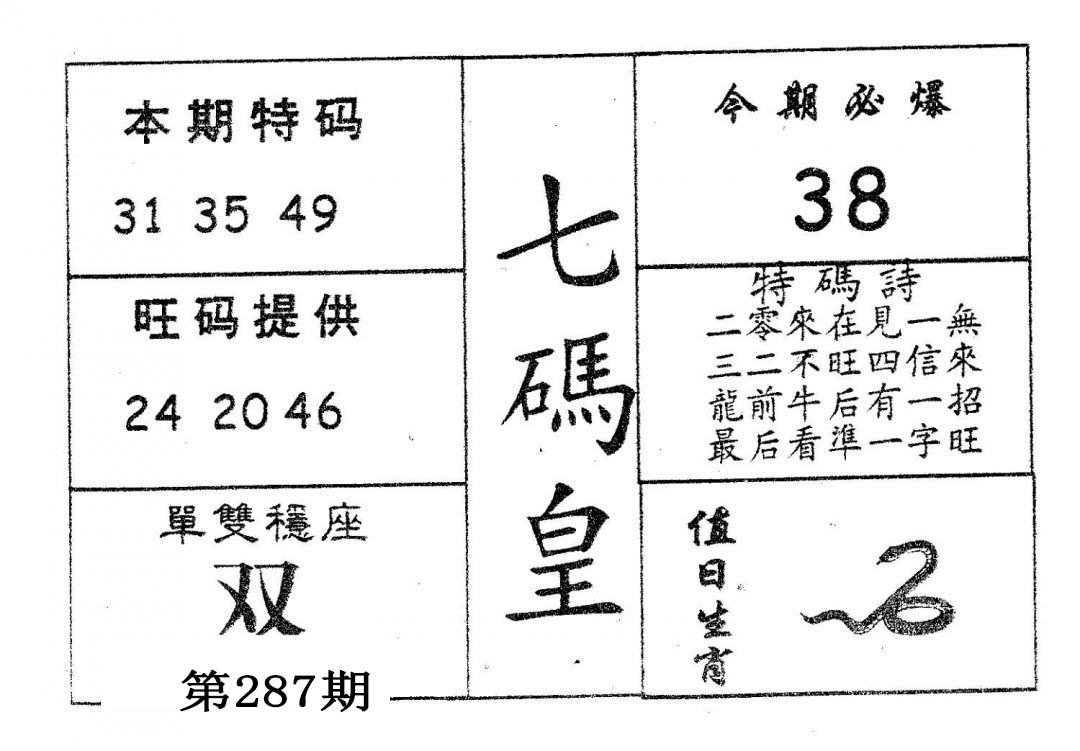 本期特码
31 35 49
旺码提供
24 20 46
單雙穩座
双
第287期
七碼皇
今期必爆
38
特碼詩
二零來在見一無
三二不旺四信來
龍前牛后有一招
最后看準一字旺
值日生肖